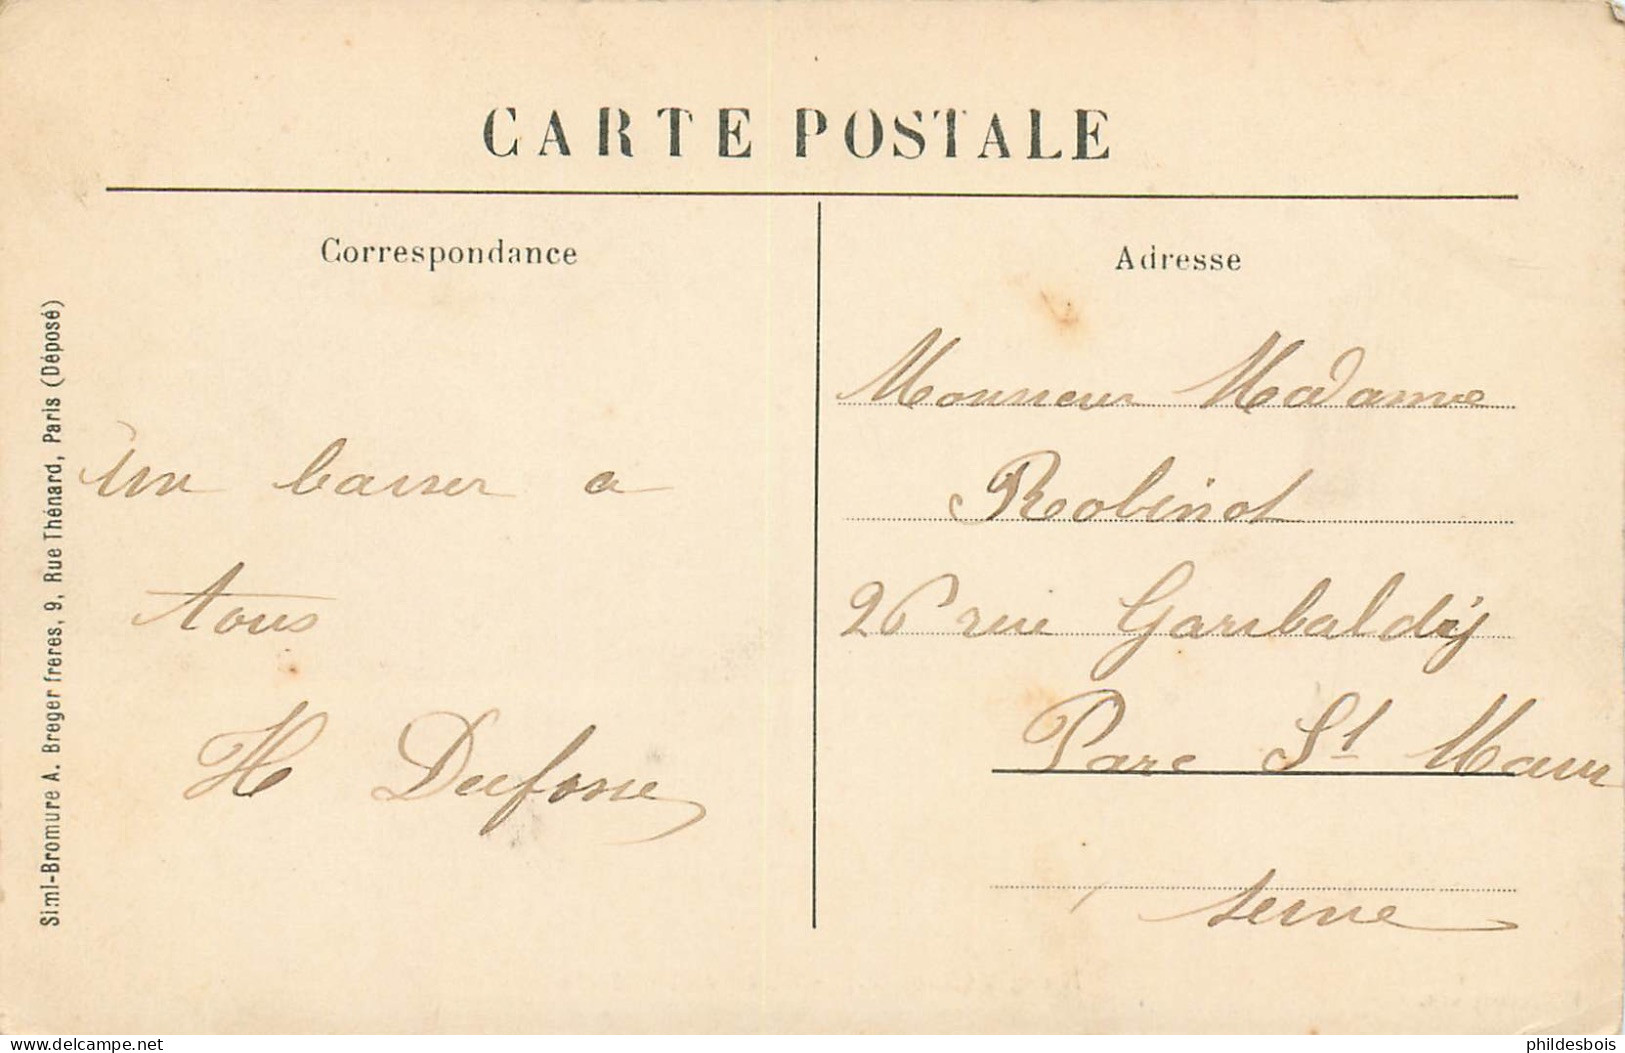 CARTE POSTALE
Correspondance
Un baiser a
tous
H Dufosse
Adresse
Monsieur Madame
Robinot
26 rue Garibaldy
Parc St Maur
Seine
Simi-Bromure A. Breger frères, 9, Rue Thénard, Paris (Déposé)
www.delcampe.net
phildesbois